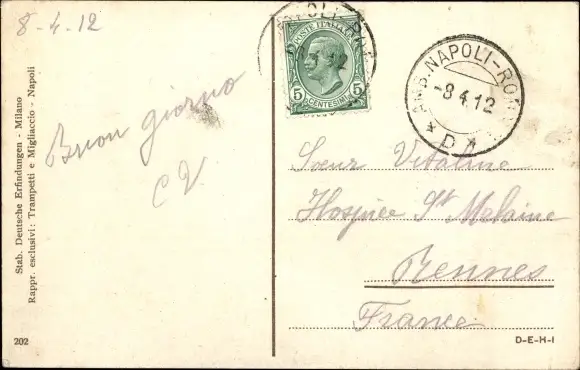 8-4.12
NAPOLI
POSTE ITALIANE
5 5
CENTESIMI
AMB. NAPOLI-ROMA
-8 4.12
* D *
Buon giorno
C V.
Soeur Vitaline
Hospice St Melaine
Rennes
France
Stab. Deutsche Erfindungen - Milano
Rappr. esclusivi: Trampetti e Migliaccio - Napoli
202
D-E-H-I